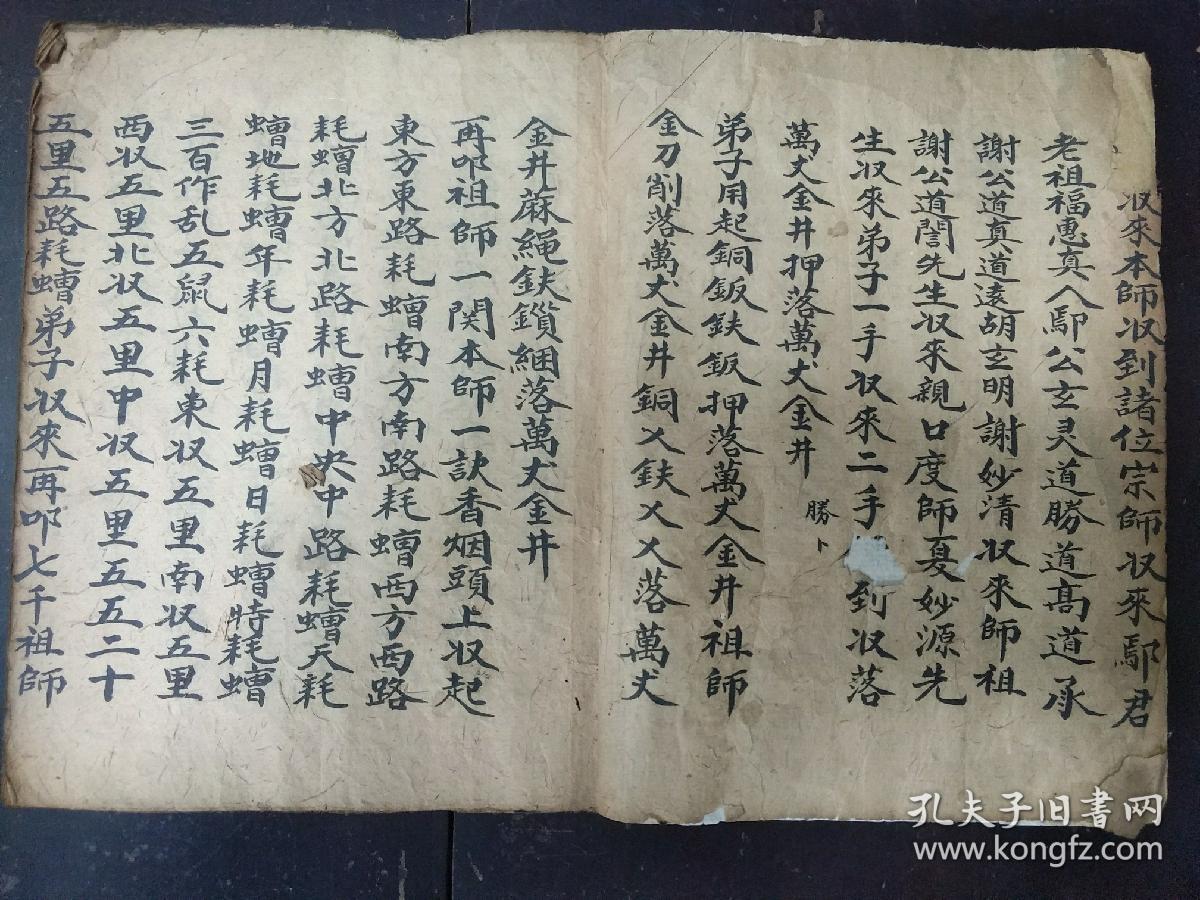 収來本師収到諸位宗師収來鄢君
老祖福惠真人鄢公玄灵道勝道髙道承
謝公道真道遠胡玄明謝妙清収來師祖
謝公道誾先生収來親口度師夏妙源先
生収來弟子一手収來二手 到収落
萬丈金井押落萬丈金井
勝卜
弟子用起銅鈑鈇鈑押落萬丈金井祖師
金刀削落萬丈金井銅乂鈇乂乂落萬丈
金井蔴繩鈇鑕綑落萬丈金井
再叩祖師一関本師一訣香烟頭上収起
東方東路耗螬南方南路耗螬西方西路
耗螬北方北路耗螬中央中路耗螬天耗
螬地耗螬年耗螬月耗螬日耗螬時耗螬
三百作乱五鼠六耗東収五里南収五里
西収五里北収五里中収五里五五二十
五里五路耗螬弟子収來再叩七千祖師
孔夫子旧書网
www.kongfz.com